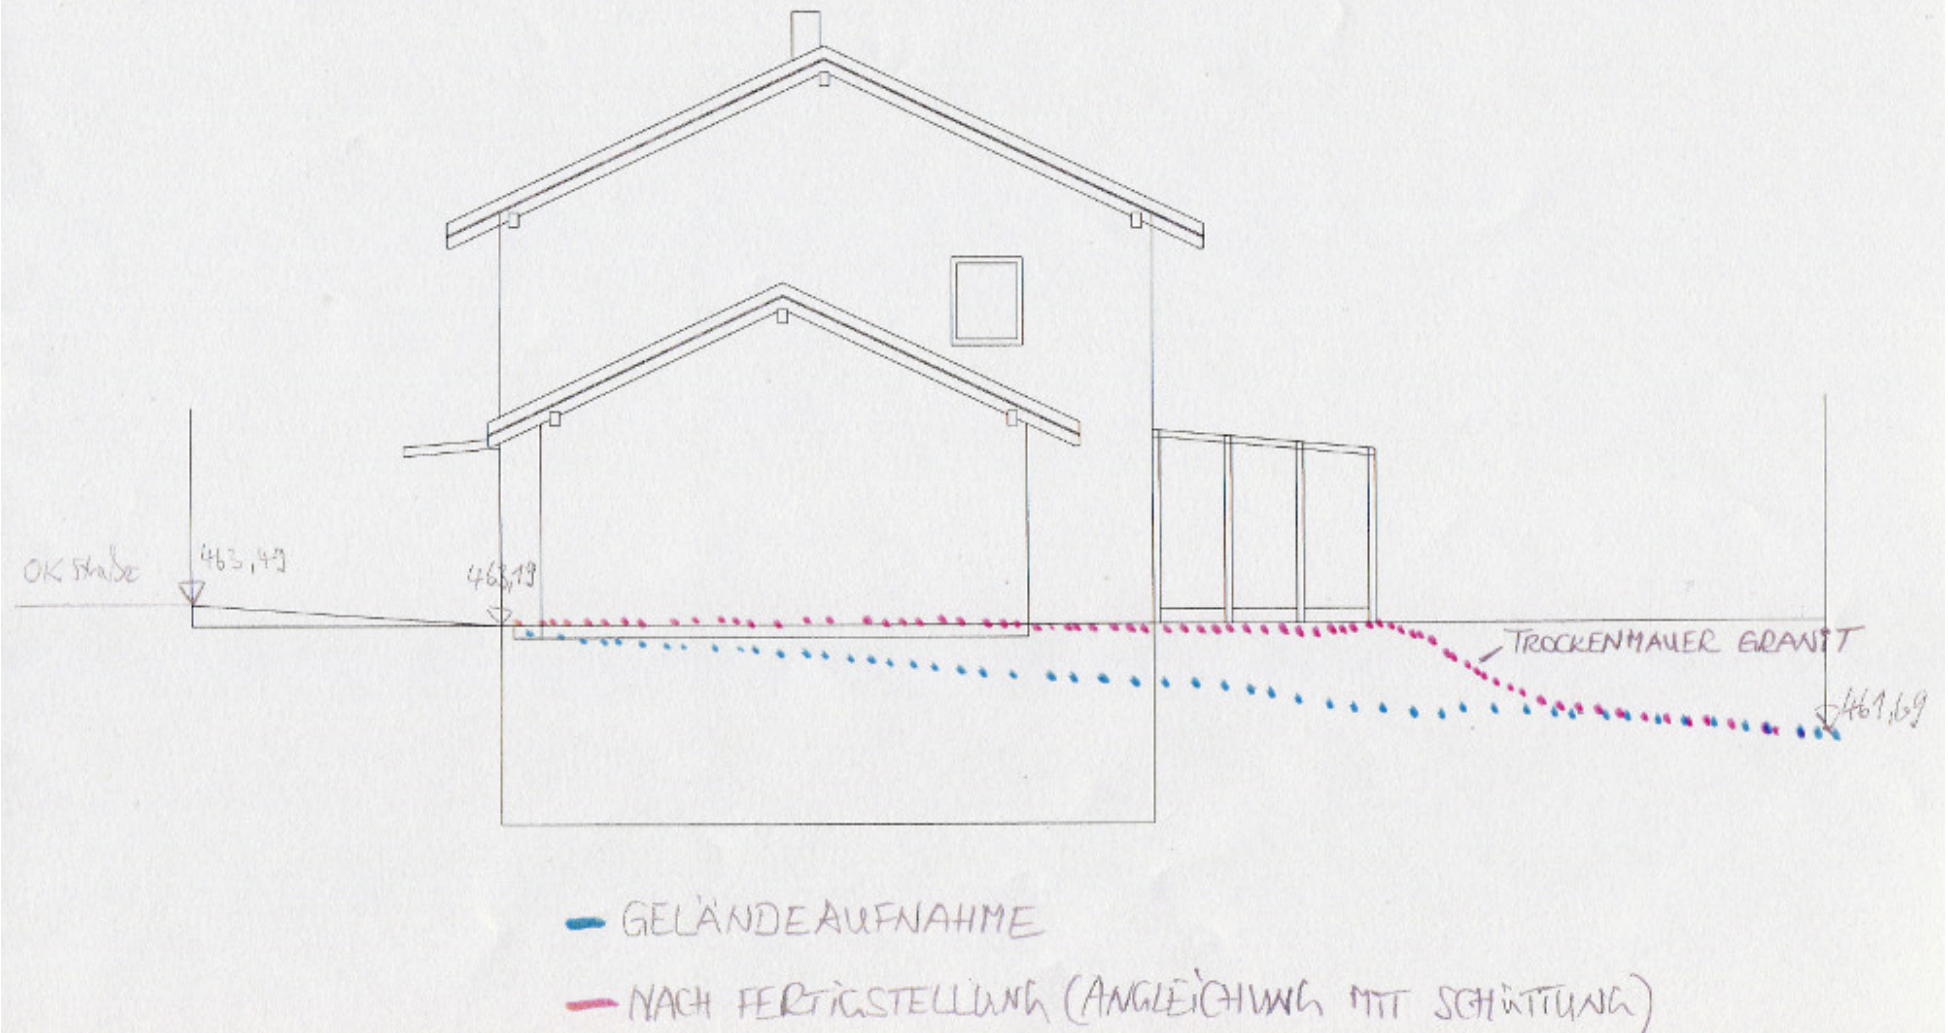 OK Straße
463,49
463,19
TROCKENMAUER GRANIT
461,69
GELÄNDEAUFNAHME
NACH FERTIGSTELLUNG (ANGLEICHUNG MIT SCHÜTTUNG)